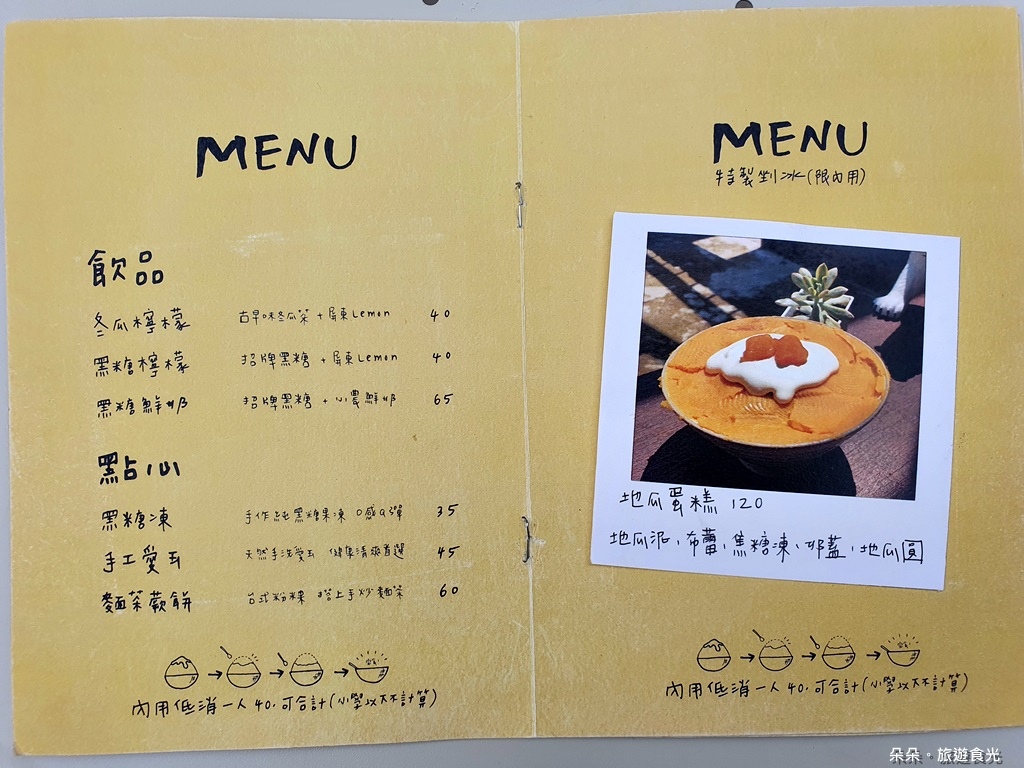 MENU
飲品
冬瓜檸檬 古早味冬瓜茶+屏東Lemon 40
黑糖檸檬 招牌黑糖+屏東Lemon 40
黑糖鮮奶 招牌黑糖+小農鮮奶 65
點心
黑糖凍 手作純黑糖果凍 口感Q彈 35
手工愛玉 天然手洗愛玉 健康清爽首選 45
麵茶蕨餅 台式粉粿 搭上手炒麵茶 60
內用低消一人40,可合計(小學以下不計算)
MENU
特製剉冰(限內用)
地瓜蛋糕 120
地瓜泥、布蕾、焦糖凍、奶蓋、地瓜圓
內用低消一人40,可合計(小學以下不計算)
朵朵。旅遊食光